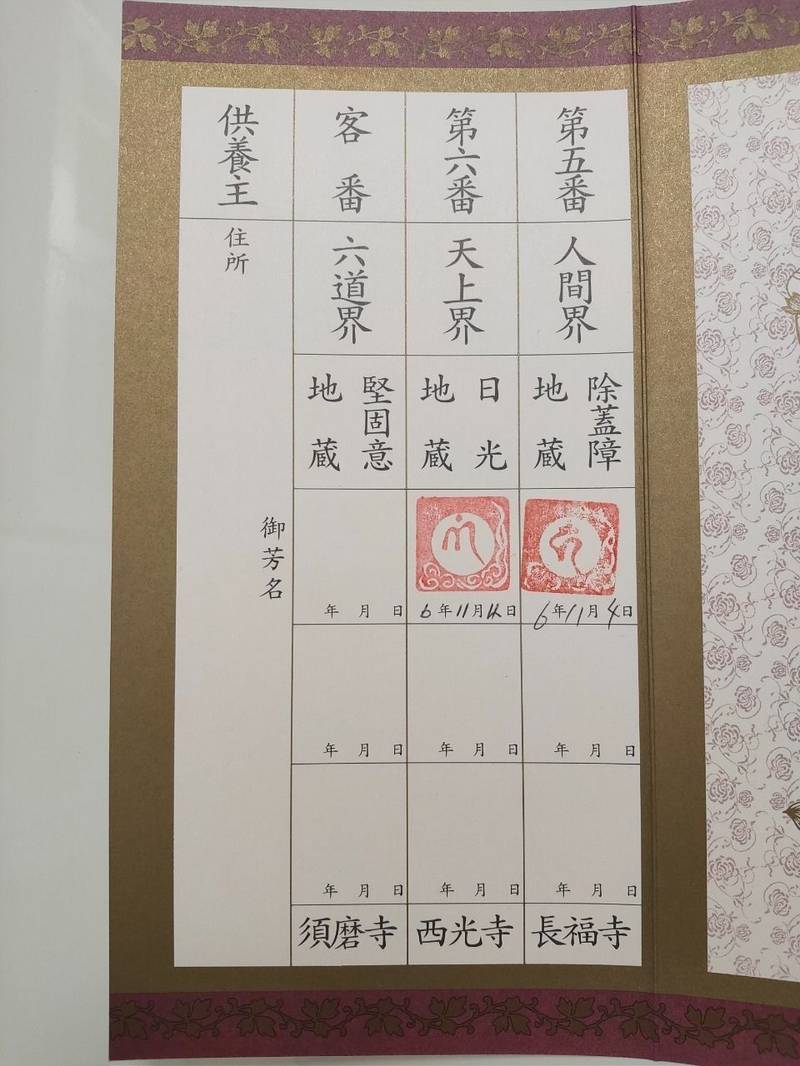 第五番
人間界
除蓋障
地蔵
6年11月4日
年 月 日
年 月 日
長福寺
第六番
天上界
日光
地蔵
6年11月日
年 月 日
年 月 日
西光寺
客番
六道界
堅固意
地蔵
年 月 日
年 月 日
年 月 日
須磨寺
供養主
住所
御芳名